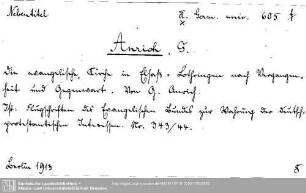 Nebentitel H. Germ. univ. 605 f
Anrich G.
Die evangelische Kirche in Elsass-Lothringen nach Vergangen-
heit und Gegenwart. Von G. Anrich
Ist: Flugschriften des Evangelischen Bundes zur Wahrung der deutsch-
protestantischen Interessen. No. 343/44.
Berlin 1913 8
Sächsische Landesbibliothek -
Staats- und Universitätsbibliothek Dresden